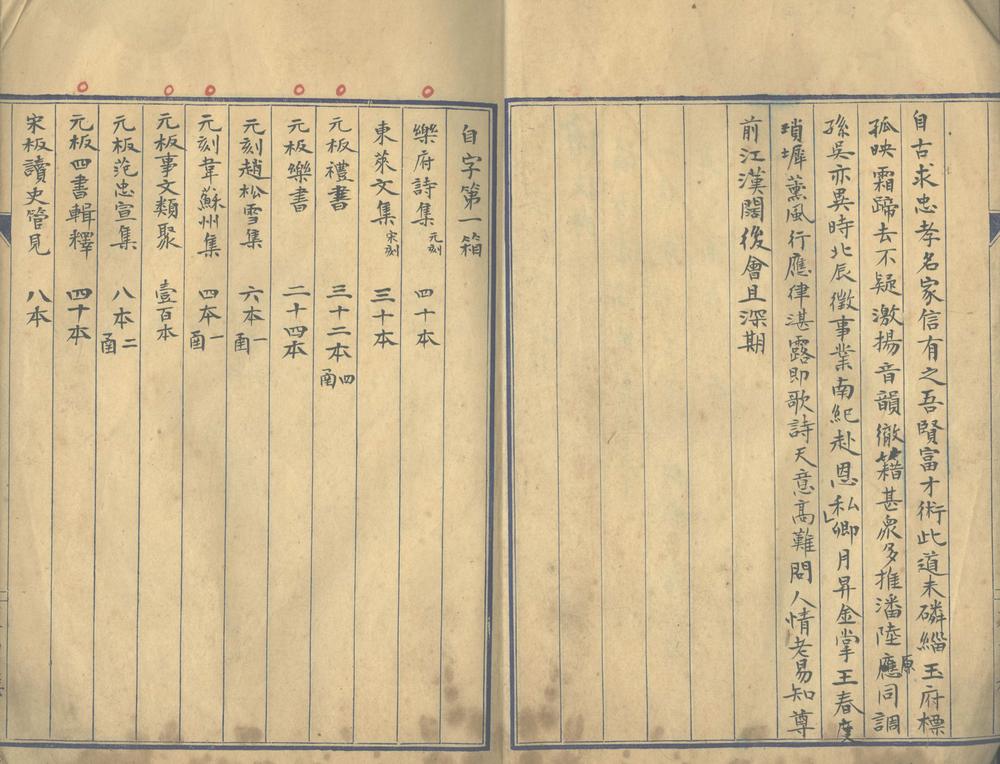 自古求忠孝名家信有之吾賢富才術此道未磷緇玉府標
孤映霜蹄去不疑激揚音韻徹籍甚衆多推潘陸應同調
原
孫吳亦異時北辰徵事業南紀赴恩私卿月昇金掌王春度
瑣墀薰風行應律湛露即歌詩天意高難問人情老易知尊
前江漢闊後會且深期
自字第一箱
樂府詩集 元刻 四十本
東萊文集 宋刻 三十本
元板禮書 三十二本 四函
元板樂書 二十四本
元刻趙松雪集 六本 一函
元刻韋蘇州集 四本 一函
元板事文類聚 壹百本
元板范忠宣集 八本 二函
元板四書輯釋 四十本
宋板讀史管見 八本